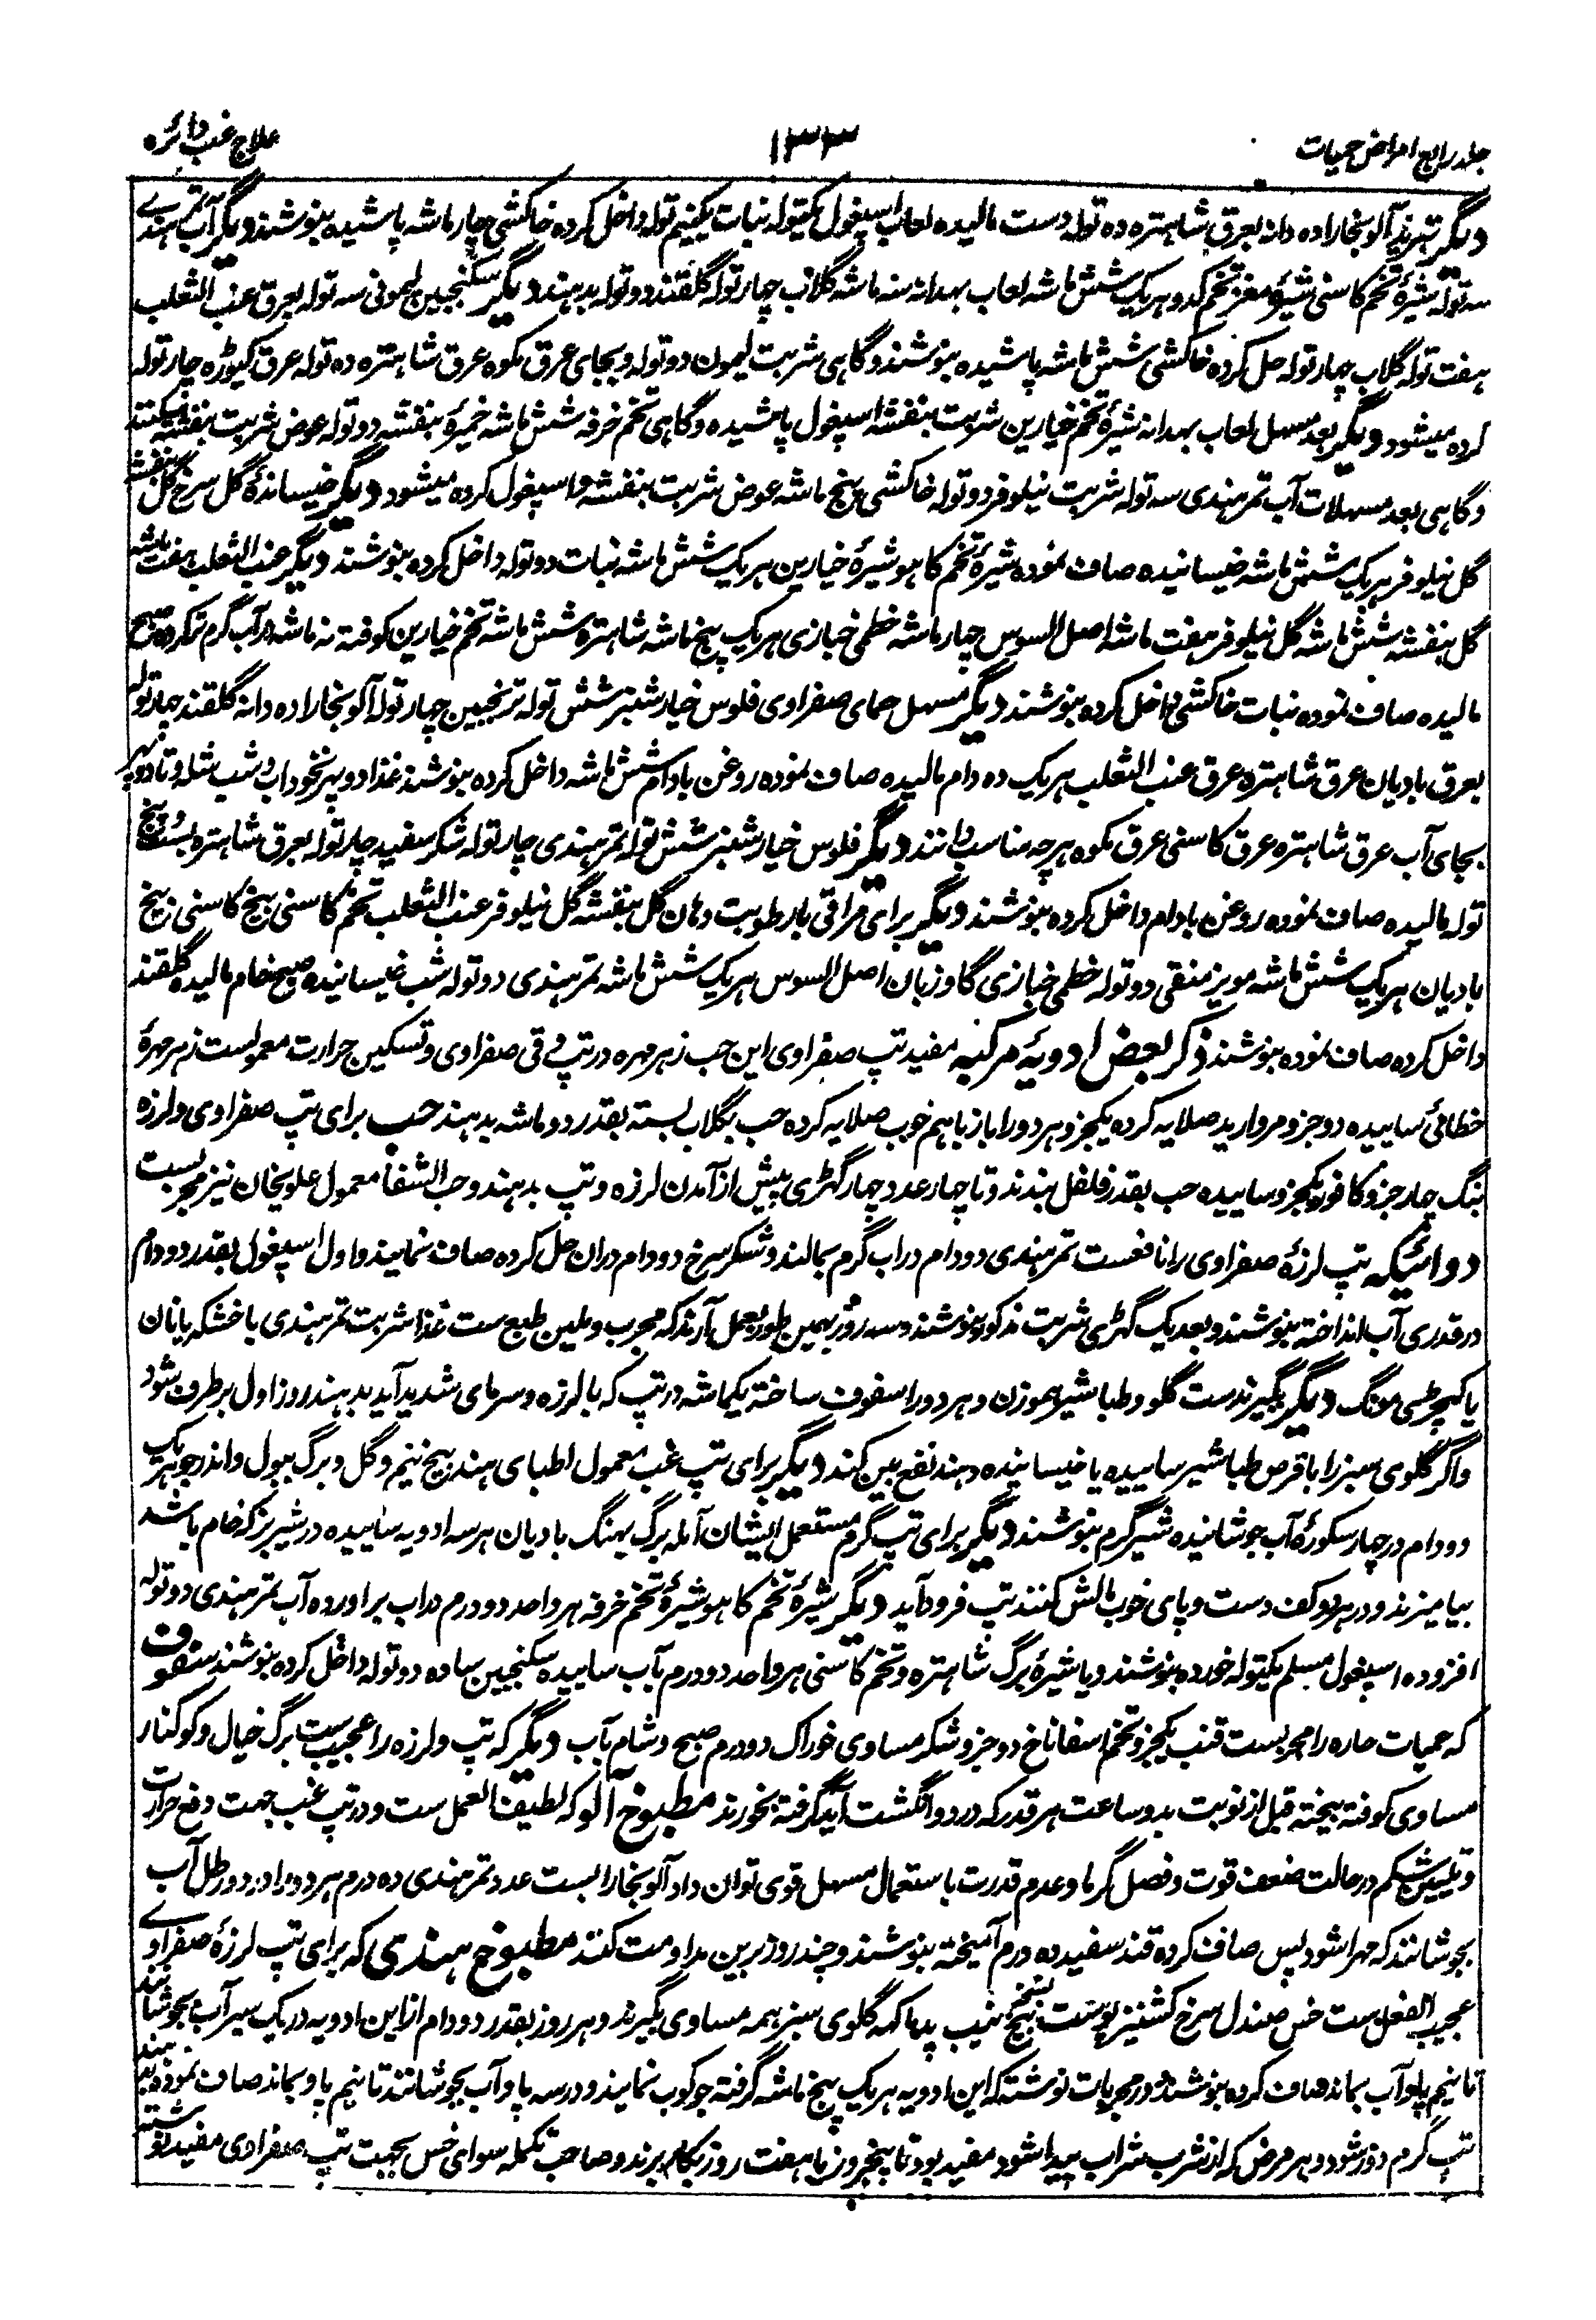 جلد رابع امراض حمیات
۱۳۳
علاج غب دائره
دیگر تبرید آلو بخارا ده دانه بعرق شاہتره ده توله دست مالیده لعاب اسپغول یکتوله نبات یکنیم توله داخل کرده خاکشی چار ماشه پاشیده بنوشند دیگر آب تمر ہندے
سه توله شیرۂ تخم کاسنی شیرۂ مغز تخم کدو ہریک شش ماشه لعاب بہدانه سه ماشه گلاب چہار توله گلقند دو توله بدہند دیگر سکنجبین لیمونی سه توله بعرق عنب الثعلب
ہفت توله گلاب چہار توله حل کرده خاکشی شش ماشه پاشیده بنوشند و گاہی شربت لیمون دو توله و بجای عرق مکوه عرق شاہتره ده توله عرق کیوڑه چار توله
کرده میشود دیگر بعد مسہل لعاب بہدانه شیرۂ تخم خیارین شربت بنفشه اسپغول پاشیده و گاہی تخم خرفه شش ماشه خمیرۂ بنفشه دو توله عوض شربت بنفشه میکنند
و گاہی بعد مسہلات آب تمر ہندی سه توله شربت نیلوفر دو توله خاکشی پنج ماشه عوض شربت بنفشه و اسپغول کرده میشود دیگر خیساندۂ گل سرخ گل بنفشه
گل نیلوفر ہریک شش ماشه خیسانیده صاف نموده شیرۂ تخم کاہو شیرۂ خیارین ہریک شش ماشه نبات دو توله داخل کرده بنوشند دیگر عنب الثعلب ہفت ماشه
گل بنفشه شش ماشه گل نیلوفر ہفت ماشه اصل السوس چہار ماشه خطمی خبازی ہریک پنج ماشه شاہتره شش ماشه تخم خیارین کوفته نه ماشه در آب گرم تر کرده صبح
مالیده صاف نموده نبات خاکشی داخل کرده بنوشند دیگر مسہل حمای صفراوی فلوس خیارشنبر شش توله ترنجبین چہار توله آلو بخارا ده دانه گلقند چہار توله
بعرق بادیان عرق شاہتره عرق عنب الثعلب ہریک ده دام مالیده صاف نموده روغن بادام شش ماشه داخل کرده بنوشند غذا دوپہر نخوداب و شب شله و تا دوپہر
بجای آب عرق شاہتره عرق کاسنی عرق مکوه ہرچه مناسب دانند دیگر فلوس خیارشنبر شش توله تمر ہندی چار توله شکر سفید چار توله بعرق شاہتره بست و پنج
توله مالیده صاف نموده روغن بادام داخل کرده بنوشند دیگر برای مراقی با رطوبت دہان گل بنفشه گل نیلوفر عنب الثعلب تخم کاسنی بیخ کاسنی بیخ
بادیان ہریک شش ماشه مویز منقی دو توله خطمی خبازی گاوزبان اصل السوس ہریک شش ماشه تمر ہندی دو توله شب خیسانیده صبح خام مالیده گلقند
داخل کرده صاف نموده بنوشند ذکر بعض ادویۂ مرکبه مفید تپ صفراوی این حب زہرمہره در تپ و قی صفراوی و تسکین حرارت معمولست زہرمہرۂ
خطائی ساییده دو جزو مروارید صلایه کرده یکجزو ہر دو را باز باہم خوب صلایه کرده حب بگلاب بسته بقدر دو ماشه بدہند حب برای تپ صفراوی و لرزه
بنگ چار جزو کافور یکجزو ساییده حب بقدر فلفل بندند و تا چہار عدد چہار گہڑی پیش از آمدن لرزه و تپ بدہند و حب الشفا معمول علویخان نیز مجربست
دوائیکه تپ لرزۂ صفراوی را نافعست تمر ہندی دو دام در آب گرم بمالند و شکر سرخ دو دام دران حل کرده صاف نمایند و اول اسپغول بقدر دو دام
در قدری آب انداخته بنوشند و بعد یک گہڑی شربت مذکور بنوشند و سه روز بہمین طور بعمل آرند که مجرب و ملین طبع ست غذا شربت تمر ہندی با خشکه یا نان
یا کہچڑی مونگ دیگر بگیرند ست گلو و طباشیر ہموزن و ہر دو را سفوف ساخته یکماشه در تپ که با لرزه و سرمای شدید آید بدہند روز اول برطرف شود
و اگر گلوی سبز را با قرص طباشیر ساییده یا خیسانیده دہند نفع بین کند دیگر برای تپ غب معمول اطبای ہند بیخ نیم و گل و برگ ببول و اندرجو ہریک
دو دام در چہار سکورۂ آب جوشانیده شیرگرم بنوشند دیگر برای تپ گرم مستعمل ایشان آمله برگ بہنگ بادیان ہر سه ادویه ساییده در شیر بز که خام باشد
بیامیزند و در ہر دو کف دست و پای خوب مالش کنند تپ فرو آید دیگر شیرۂ تخم کاہو شیرۂ تخم خرفه ہر واحد دو درم در آب برآورده آب تمر ہندی دو توله
افزوده اسپغول مسلم یکتوله خورده بنوشند و یا شیرۂ برگ شاہتره و تخم کاسنی ہر واحد دو درم بآب ساییده سکنجبین ساده دو توله داخل کرده بنوشند سفوف
که حمیات حاره را مجربست قنب یکجزو تخم اسفاناخ دو جزو شکر مساوی خوراک دو درم صبح و شام بآب دیگر که تپ و لرزه را عجیب ست برگ خیال و کوکنار
مساوی کوفته بیخته قبل از نوبت بدو ساعت ہر قدر که در دو انگشت آید گرفته بخورند مطبوخ آلو که لطیف العمل ست و در تپ غب جہت دفع حرارت
و تلیین شکم در حالت ضعف قوت و فصل گرما و عدم قدرت باستعمال مسہل قوی توان داد آلو بخارا بست عدد تمر ہندی ده درم ہر دو را در دو رطل آب
بجوشانند که مہرا شود پس صاف کرده قند سفید ده درم آمیخته بنوشند و چند روز برین مداومت کنند مطبوخ ہندی که برای تپ لرزۂ صفراوے
عجیب الفعل ست خس صندل سرخ کشنیز پوست بیخ نیب پدماکہه گلوی سبز ہمه مساوی بگیرند و ہر روز بقدر دو دام ازین ادویه در یک سیر آب بجوشانند
تا نیم پاو آب بماند صاف کرده بنوشند و در مجربات نوشته که این ادویه ہریک پنج ماشه گرفته جوکوب نمایند و در سه پاو آب بجوشانند تا نیم پاو بماند صاف نموده بدہند
تپ گرم دور شود و ہر مرض که از شرب شراب پیدا شود مفید بود تا پنجروز یا ہفت روز بکار برند و صاحب تکمله سوای خس بجہت تپ صفراوی مفید نوشته